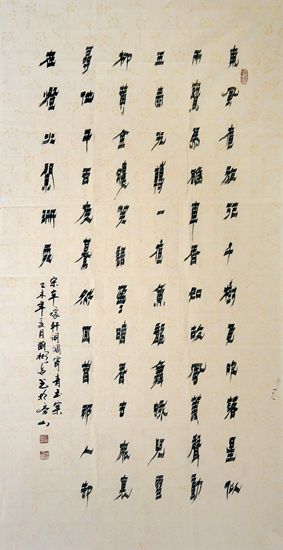 東風夜放花千樹更吹落星似
雨寶馬雕車香滿路鳳簫聲動
玉壺光轉一夜魚龍舞蛾兒雪
柳黃金縷笑語盈々暗香去眾裏
尋他千百度驀然回首那人卻
在燈火闌珊處
宋辛稼軒詞元宵青玉案
乙未年 月 書於香山